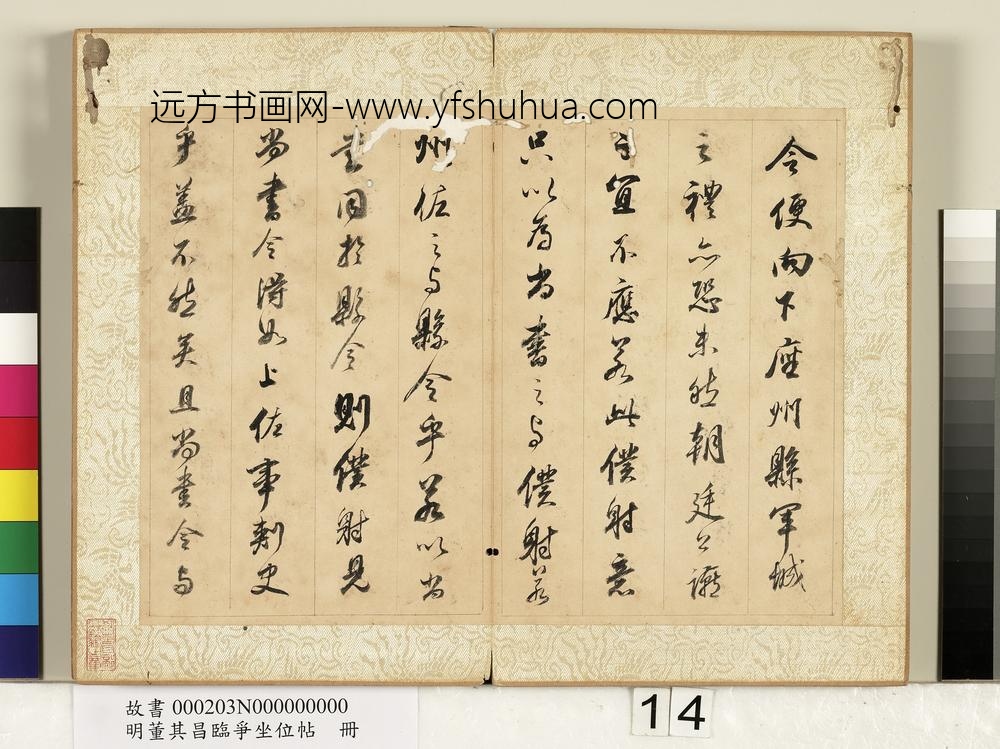 远方书画网-www.yfshuhua.com
令便向下座州縣軍城
之禮亦恐未然朝廷公讌
之宜不應若此僕射意
只以為尚書之与僕射若
州佐之与縣令乎若以尚
書同於縣令則僕射見
尚書令得如上佐事刺史
乎益不然矣且尚書令与
故書 000203N000000000
明董其昌臨爭坐位帖 冊
14